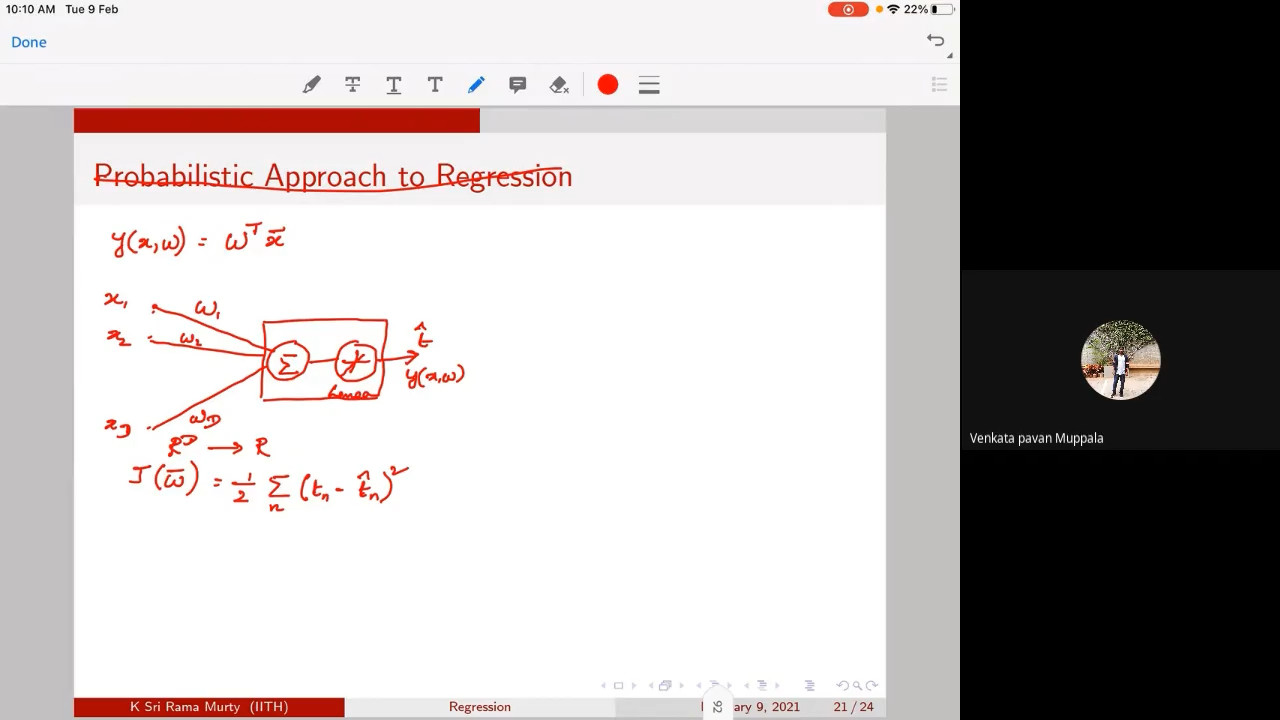 10:10 AM Tue 9 Feb
22%
Done
T T T
Probabilistic Approach to Regression
y(x,ω) = ω^T x̄
x₁ ω₁
x₂ ω₂
Σ
t̂
y(x,ω)
Linear
ω_D
R^D → R
J(ω̄) = 1/2 Σ_n (t_n - t̂_n)²
K Sri Rama Murty (IITH) Regression 9, 2021 21 / 24
92
Venkata pavan Muppala